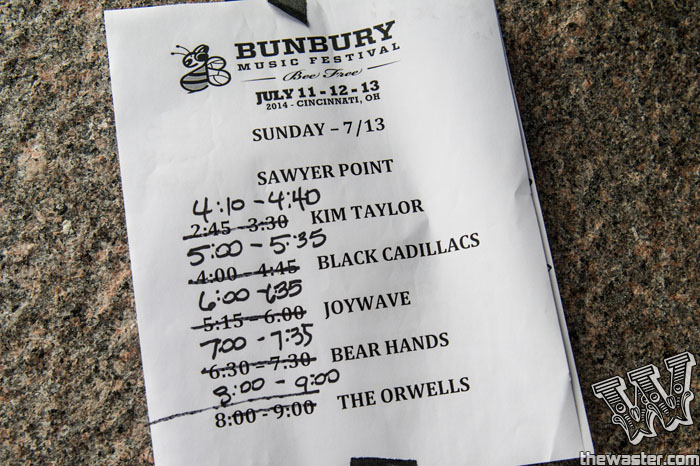 BUNBURY
MUSIC FESTIVAL
Bee Free
JULY 11 - 12 - 13
2014 - CINCINNATI, OH
SUNDAY – 7/13
SAWYER POINT
4:10 - 4:40
2:45 – 3:30 KIM TAYLOR
5:00 - 5:35
4:00 – 4:45 BLACK CADILLACS
6:00 - 6:35
5:15 – 6:00 JOYWAVE
7:00 - 7:35
6:30 – 7:30 BEAR HANDS
8:00 - 9:00
8:00 - 9:00 THE ORWELLS
W
thewaster.com